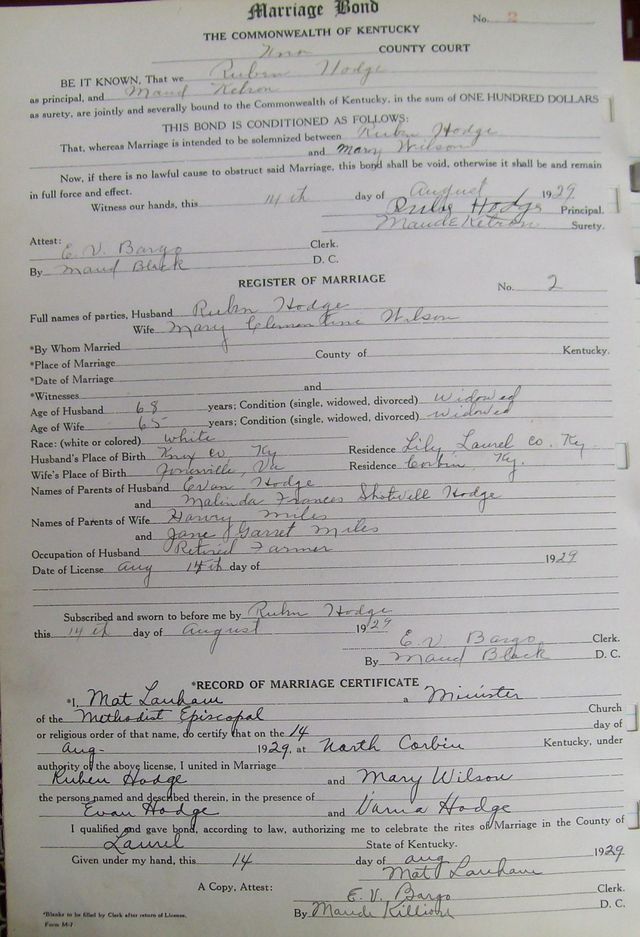 Marriage Bond
No. 2
THE COMMONWEALTH OF KENTUCKY
Knox COUNTY COURT
BE IT KNOWN, That we Ruben Hodge
as principal, and Maud Ketron
as surety, are jointly and severally bound to the Commonwealth of Kentucky, in the sum of ONE HUNDRED DOLLARS
THIS BOND IS CONDITIONED AS FOLLOWS:
That, whereas Marriage is intended to be solemnized between Rubn Hodge
and Mary Wilson
Now, if there is no lawful cause to obstruct said Marriage, this bond shall be void, otherwise it shall be and remain
in full force and effect.
Witness our hands, this 14th day of August 1929
Hodge Principal.
Maude Ketron Surety.
Attest:
E. V. Bargo Clerk.
By Maud Black D. C.
REGISTER OF MARRIAGE
No. 2
Full names of parties, Husband Rubn Hodge
Wife Mary Clementine Wilson
*By Whom Married
*Place of Marriage County of Kentucky.
*Date of Marriage
*Witnesses and
Age of Husband 68 years; Condition (single, widowed, divorced) widowed
Age of Wife 65 years; Condition (single, widowed, divorced) widowed
Race: (white or colored) white
Husband's Place of Birth Knox Co. Ky Residence Lily Laurel Co. Ky.
Wife's Place of Birth Jonesville, Va Residence Corbin, Ky.
Names of Parents of Husband Evan Hodge
and Malinda Frances Shotwell Hodge
Names of Parents of Wife Harvy Miles
and Jane Garret Miles
Occupation of Husband Retired Farmer
Date of License Aug 14th day of 1929
Subscribed and sworn to before me by Rubn Hodge
this 14th day of August 1929
E. V. Bargo Clerk.
By Maud Black D. C.
*RECORD OF MARRIAGE CERTIFICATE
*I, Mat Lanham a Minister
of the Methodist Episcopal Church
or religious order of that name, do certify that on the 14 day of
Aug- 1929, at North Corbin Kentucky, under
authority of the above license, I united in Marriage
Ruben Hodge and Mary Wilson
the persons named and described therein, in the presence of
Evan Hodge and Varna Hodge
I qualified and gave bond, according to law, authorizing me to celebrate the rites of Marriage in the County of
Laurel State of Kentucky.
Given under my hand, this 14 day of Aug 1929
Mat Lanham
A Copy, Attest: E. V. Bargo Clerk.
By Maude Killion D. C.
*Blanks to be filled by Clerk after return of License.
Form M-7